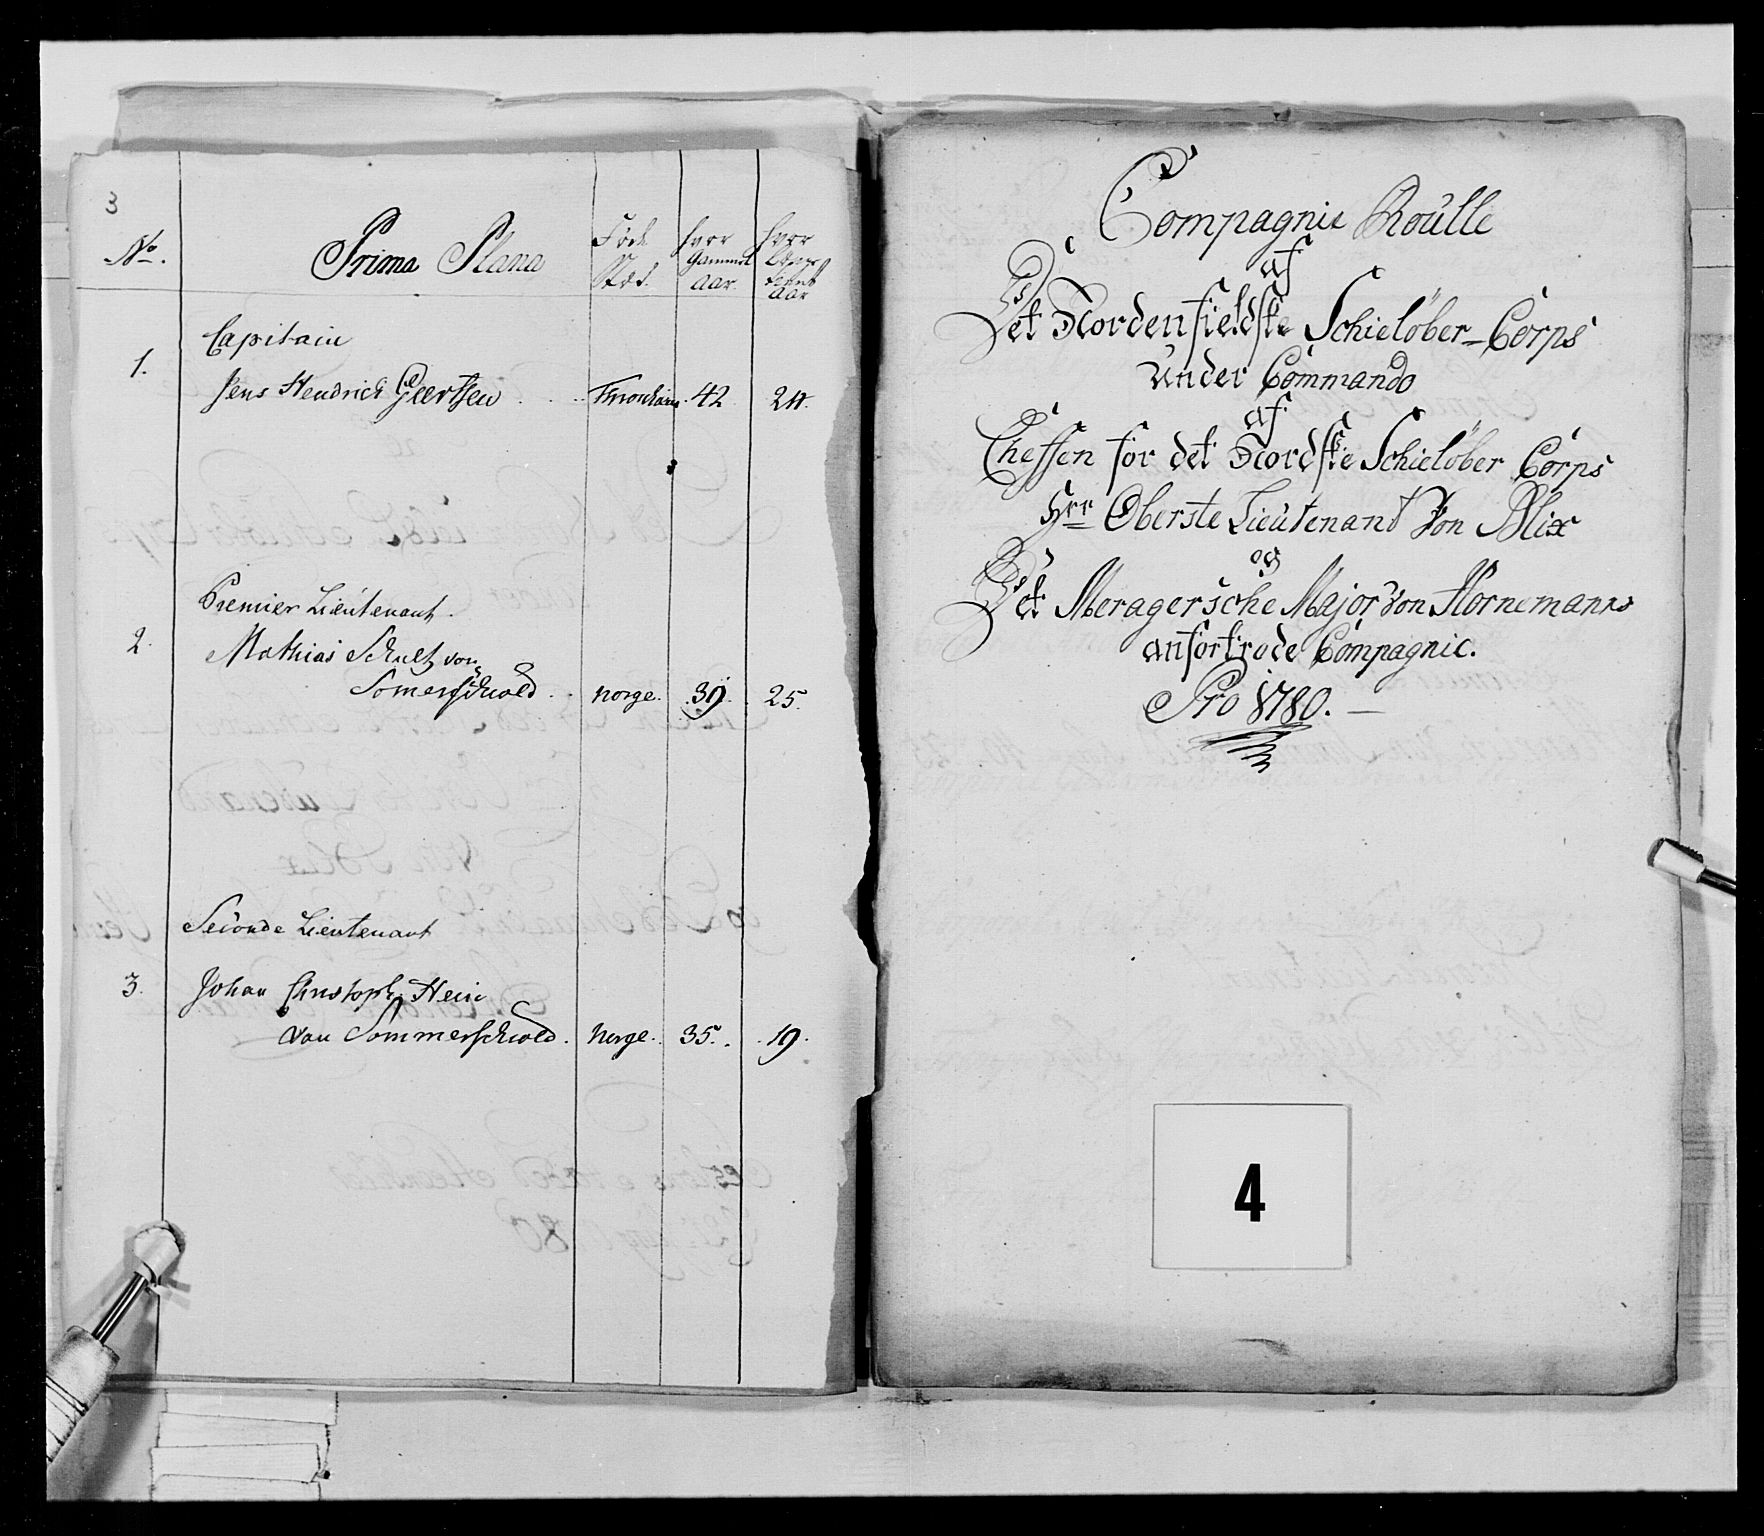 3
No.
Prima Plana
Føde Sted.
hvor Gammel Aar
hvor Længe tient Aar
Capitain
1.
Jens Hendrich Geertsen . . . Tronhiem. 42 24.
Premier Lieutenant.
2.
Mathias Schultz von
Somerschield . . Norge. 39. 25.
Seconde Lieutenant
3.
Johan Christoph Hein
von Sommerschield. Norge. 35. 19.
Compagnie Roulle
af
Det Nordenfieldske Schieløber-Corps
Under Commando
af
Cheffen for det Nordske Schieløber Corps
Hrr Oberste Lieutenant Von Blix
og
Det Meragersche Major von Hornemanns
anfortrode Compagnie.
Pro 1780.
4